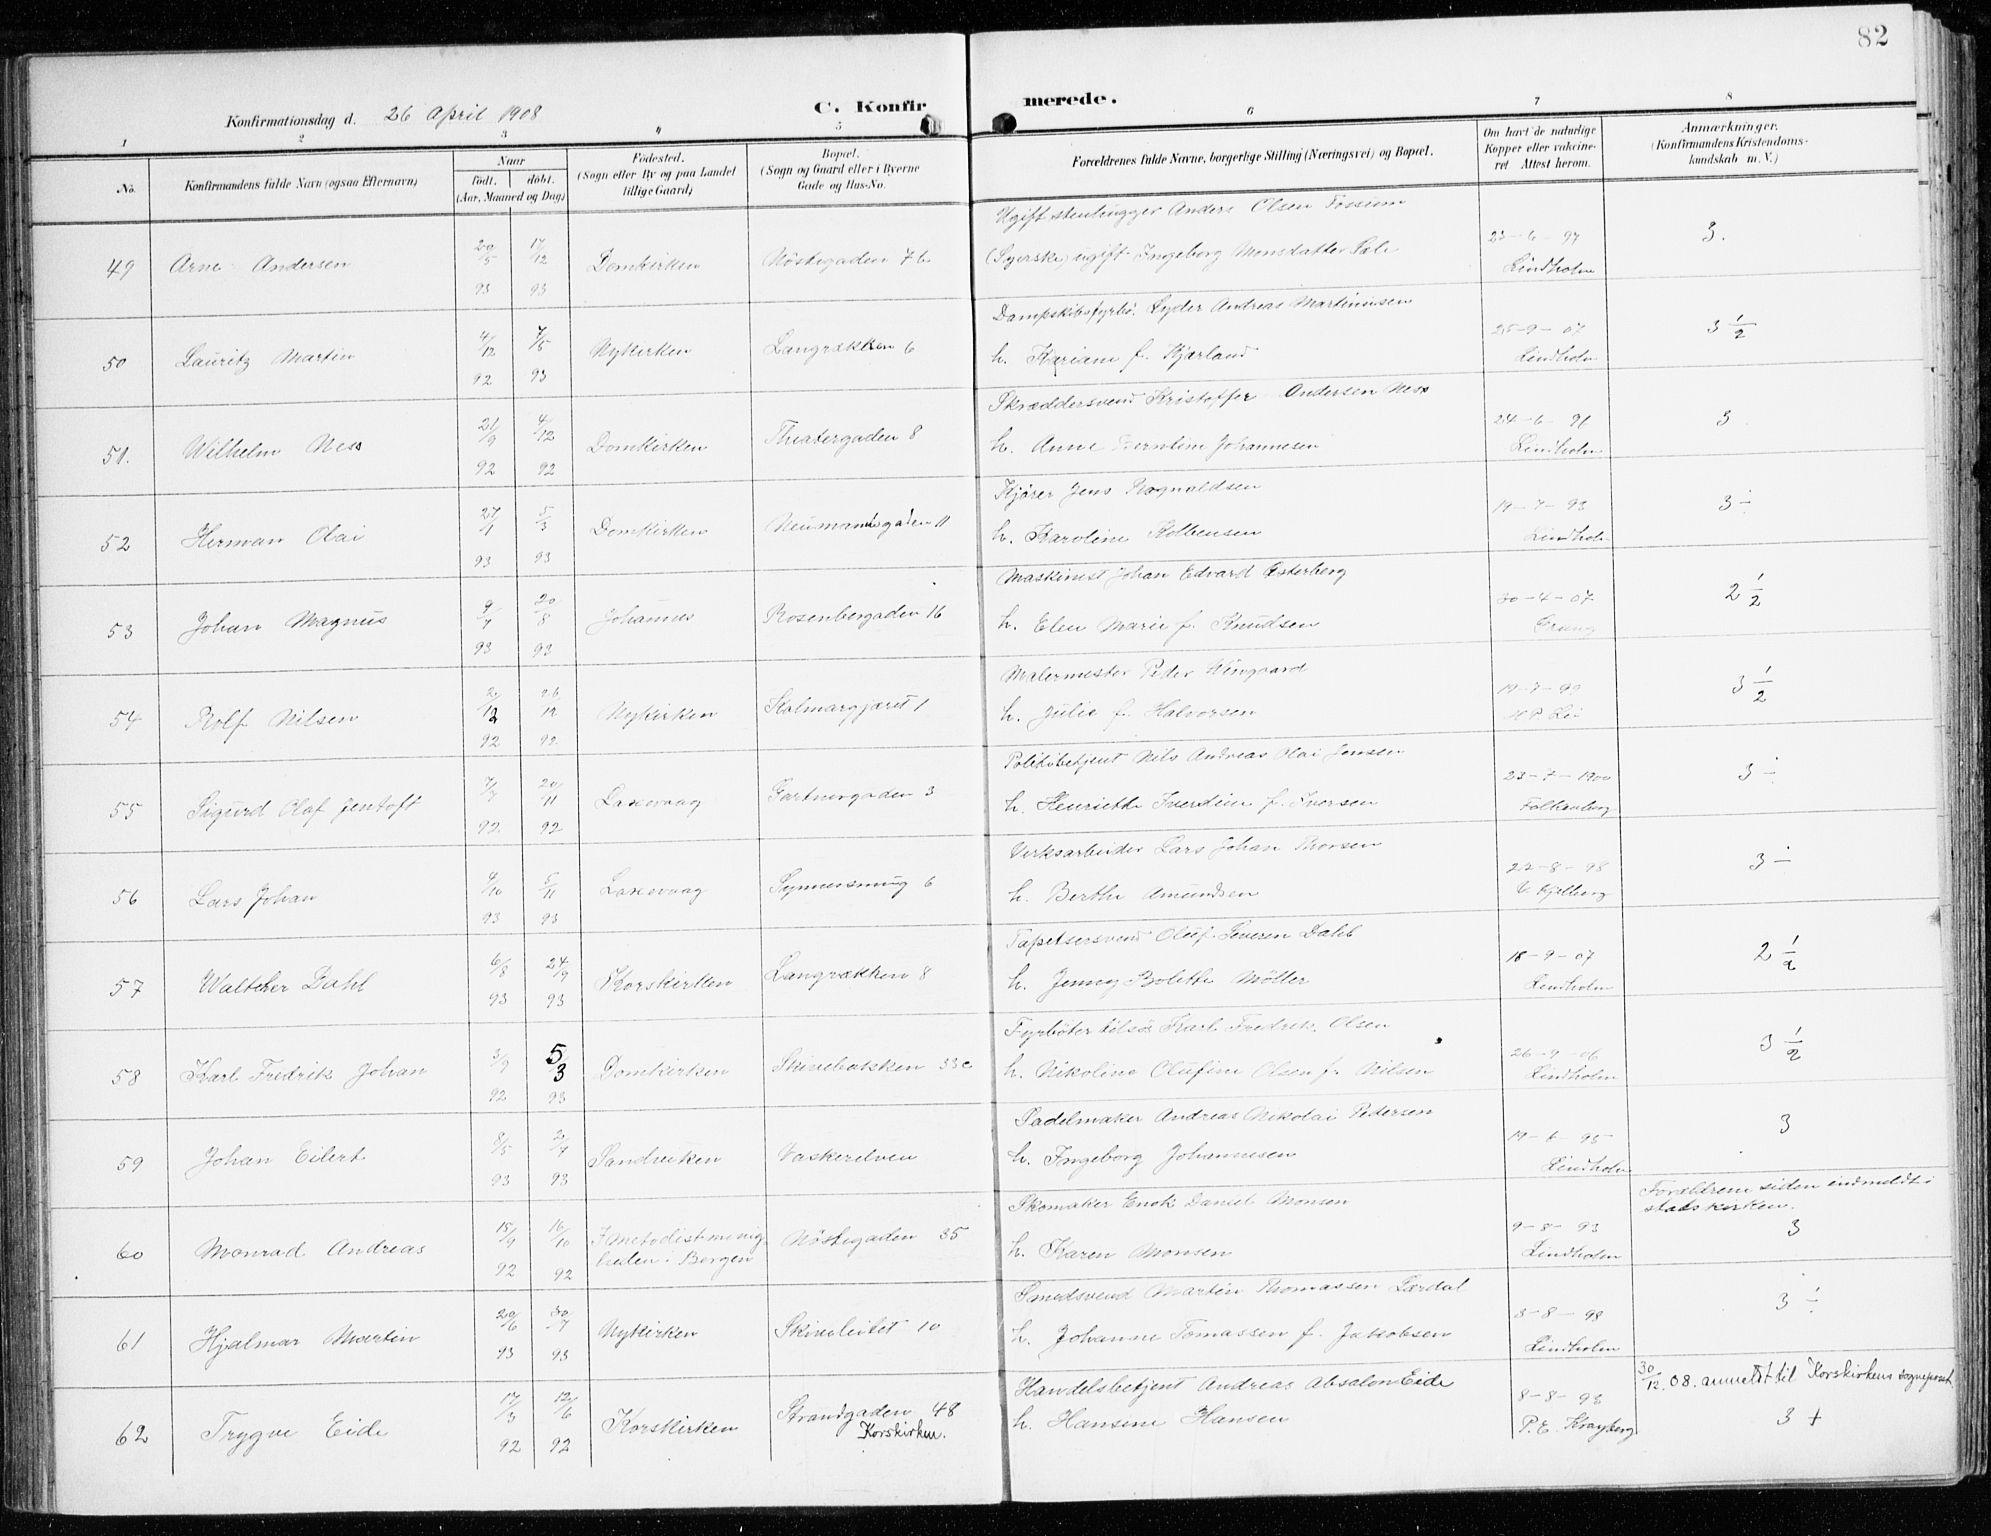 82
C. Konfirmerede.
Konfirmationsdag d. 26 April 1908
1 2 3 4 5 6 7 8
No. Konfirmandens fulde Navn (ogsaa Efternavn) Naar født. døbt. (Aar, Maaned og Dag) Fødested. (Sogn eller By og paa Landet tillige Gaard) Bopæl. (Sogn og Gaard eller i Byerne Gade og Hus-No. Forældrenes fulde Navne, borgerlige Stilling (Næringsvei) og Bopæl. Om havt de naturlige Kopper eller vakcineret Attest herom. Anmærkninger. (Konfirmandens Kristendomskundskab m. V.)
Ugift stenhugger Anders Olsen Fossum
49 Arne Andersen 20/5 93 17/12 93 Domkirken Nøstegaden 76 (Syerske) ugift Ingeborg Monsdatter 3.
Lindholm
Dampskibsfyrbø. Lyder Andreas Martinusen
50 Lauritz Martin 4/12 92 7/5 93 Nykirken Langrækken 6 h. Mariane f. Kjærland 25-9-07 Lindholm 3 1/2
Skræddersvend Kristoffer Andersen Ness
51. Wilhelm Ness 21/9 92 4/12 92 Domkirken Theatergaden 8 h. Anne Berntine Johannesen 24-6-96 Lindholm 3
Kjører Jens Ragnaldsen
52 Herman Olai 27/1 93 5/3 93 Domkirken Neumannsgaden 11 h. Karoline Kolbensen 19-7-93 Lindholm 3 ÷
Maskinist Johan Edvard Østerberg
53 Johan Magnus 9/7 93 20/8 93 Johannes Rosenbergaden 16 h. Elen Marie f. Knudsen 30-4-07 2 1/2
Malermester Peder Wingaard
54 Rolf Nilsen 2/12 92 26/12 92 Nykirken Kalmargjæret 1 h. Julie f. Halvorsen 19-7-99 3 1/2
Politibetjent Nils Andreas Olai Jensen
55 Sigurd Olaf Jentoft 7/7 92 20/11 92 Laxevaag Gartnergaden 3 h. Henriette Iverdine f. Iversen 23-7-1900 Falkenberg 3 ÷
Verksarbeider Lars Johan Thorsen
56 Lars Johan 4/10 93 5/11 93 Laxevaag Synnesmug 6 h. Berthe Amundsen 22-8-98 3 ÷
Tapetsersvend Oluf Severin Dahl
57 Walther Dahl 6/8 93 24/9 93 Korskirken Langrækken 8 h. Jenny Bolette Möller 18-9-07 Lindholm 2 1/2
Fyrbøter tilsøs Karl Fredrik Olsen
58 Karl Fredrik Johan 3/9 92 5/3 93 Domkirken Skivebakken 33c h. Nikoline Olufine Olsen f. Nilsen 26-9-06 Lindholm 3 1/2
Sadelmaker Andreas Nikolai Pedersen
59 Johan Eilert 8/5 93 2/7 93 Sandviken Vaskerelven h. Ingeborg Johannesen 19-6-95 Lindholm 3
Skomaker Enok Daniel Monsen Forældrene siden indmeldt i statskirken.
60 Monrad Andreas 15/9 92 16/10 92 I metodistmenigheden i Bergen Nöstegaden 35 h. Karen Monsen 9-8-93 Lindholm 3
Smedsvend Martin Thomassen Lærdal
61 Hjalmar Martin 20/6 93 30/7 93 Nykirken Skiveleitet 10 h. Johanne Tomassen f. Jakobsen 3-8-98 Lindholm 3 ÷
Handelsbetjent Andreas Absalon Eide 30/12.08. anmeldt til Korskirkens sogneprest
62 Trygve Eide 17/3 92 12/6 92 Korskirken Strandgaden 48 Korskirken. h. Hansine Hansen 8-8-93 3 +